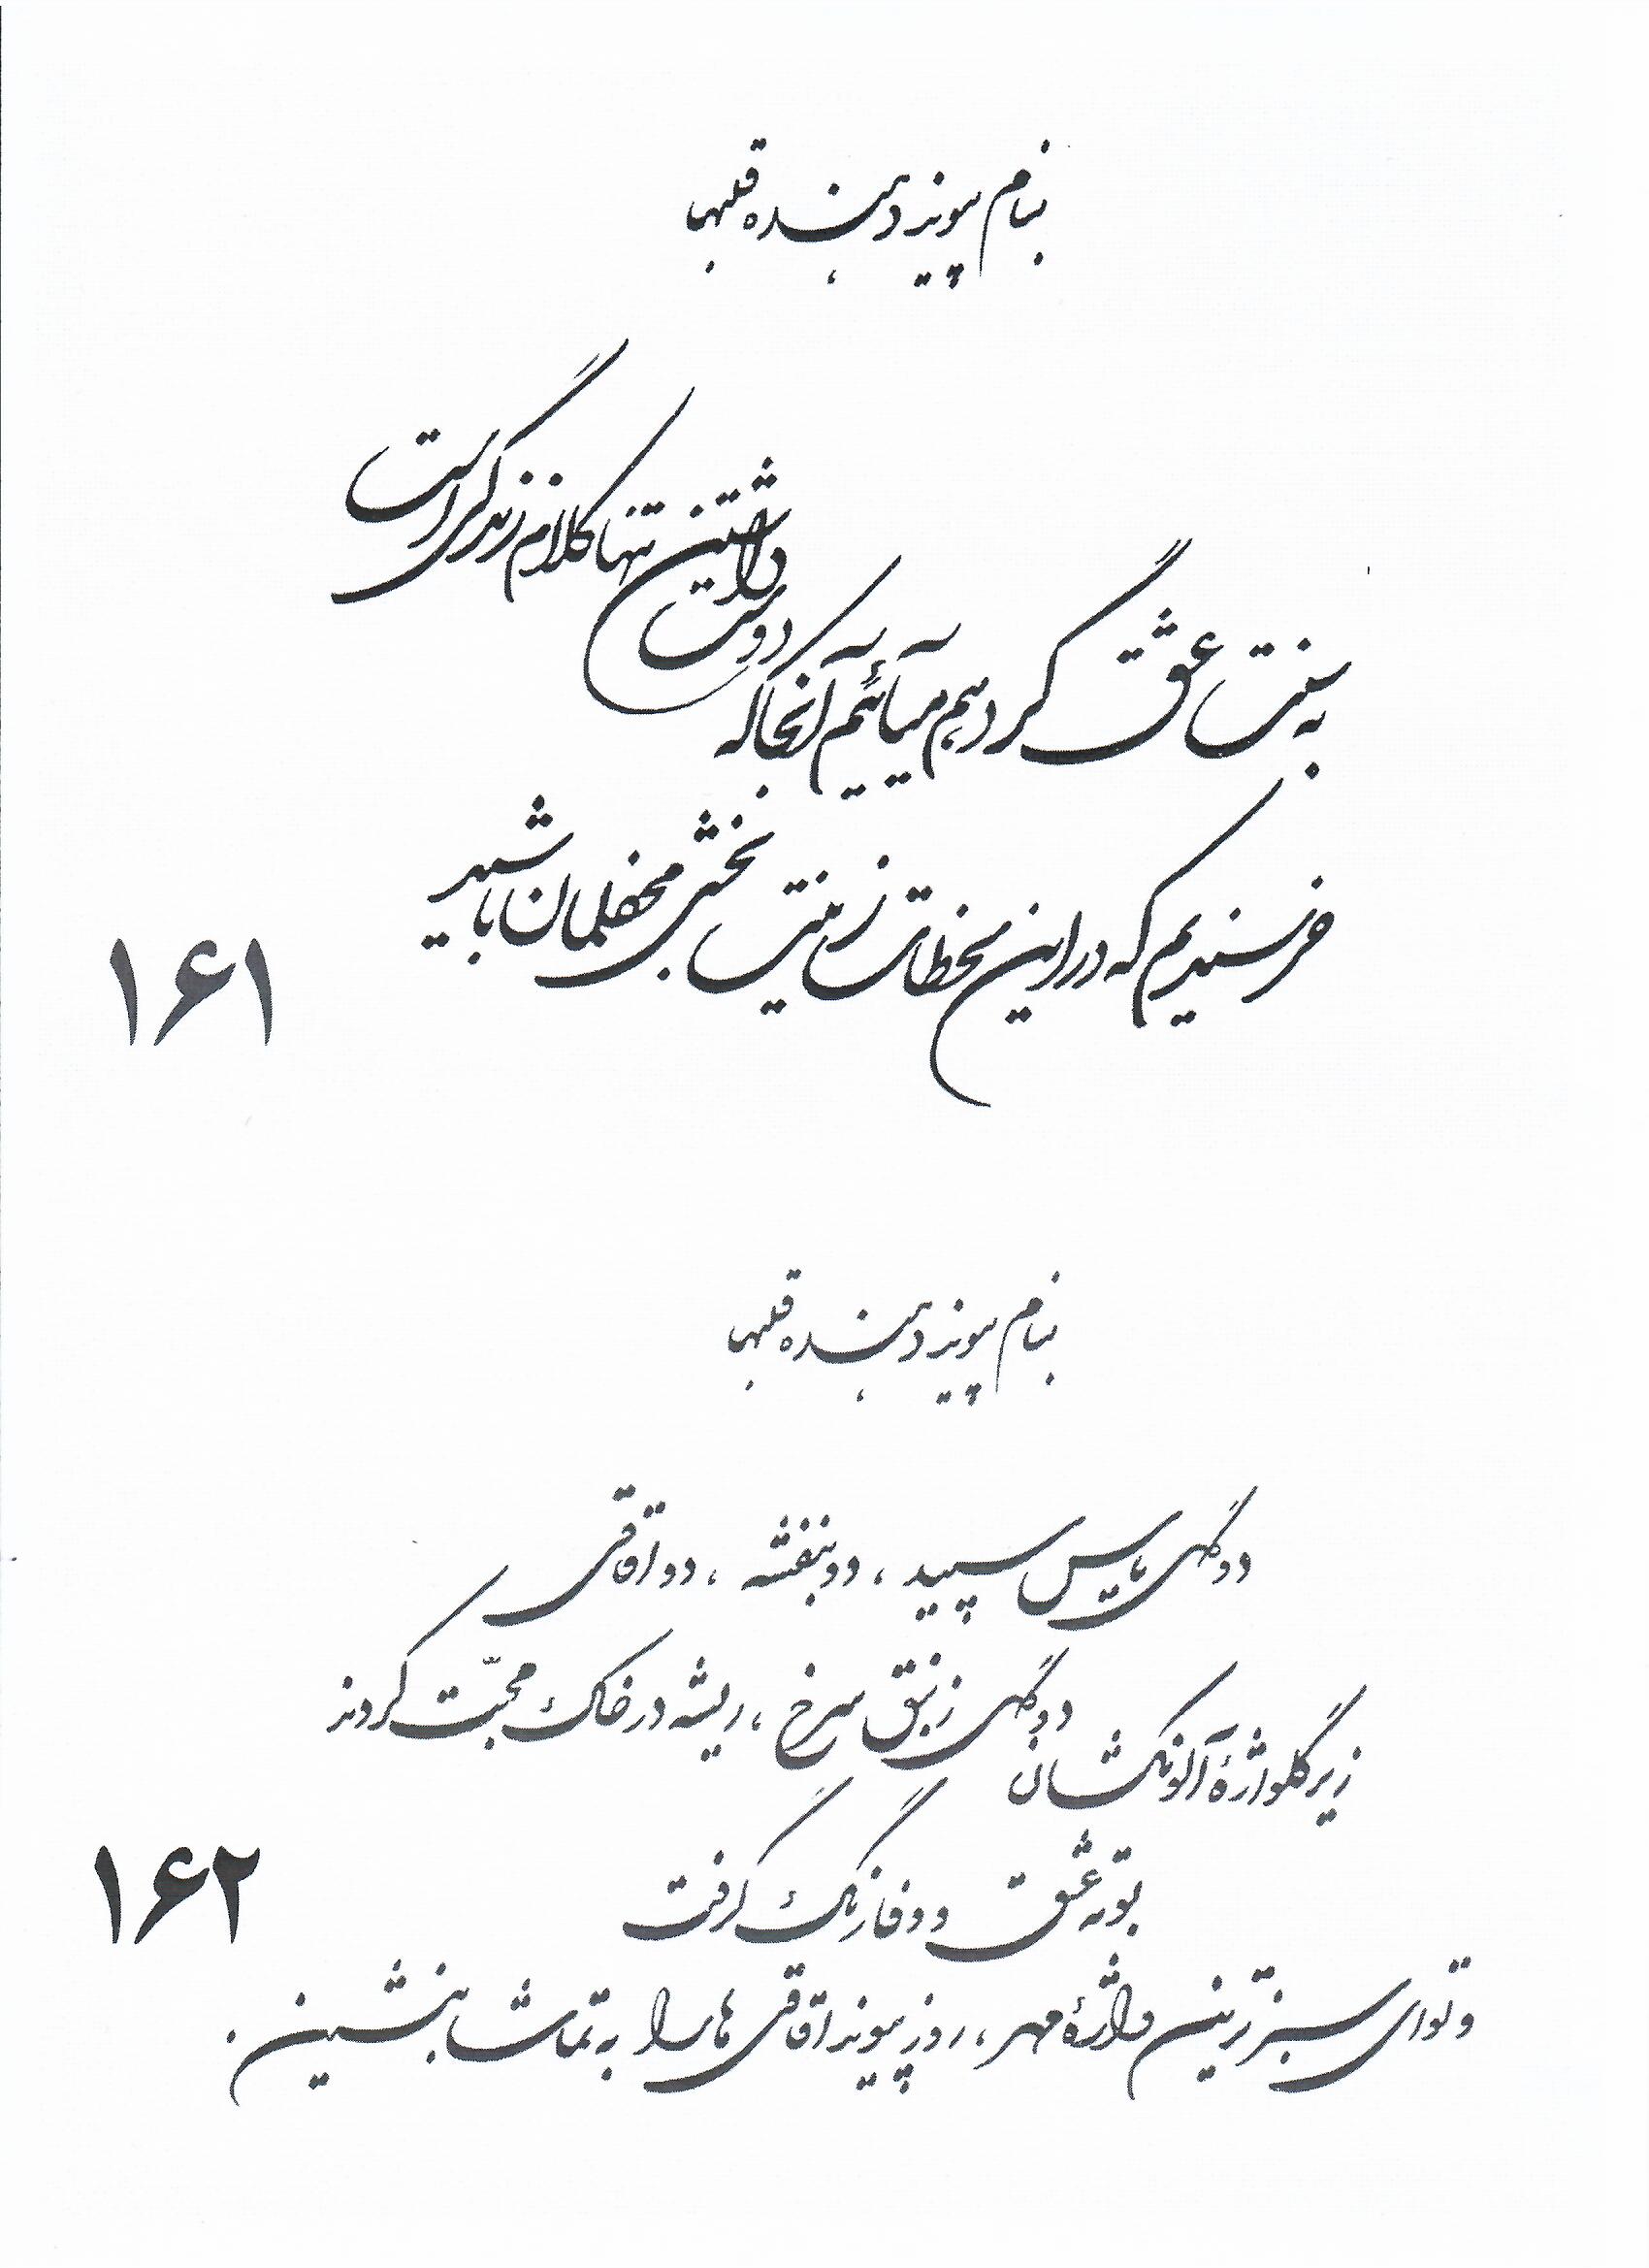 بنام پیوند دهنده قلبها
به سنت عشق گرد هم میآئیم آنجا که
دوست داشتن تنها کلام زندگی است
خرسندیم که در این لحظات زینت بخش محفلمان باشید
۱۶۱
بنام پیوند دهنده قلبها
دو گل یاس سپید ، دو بنفشه ، دو اقاقی
دو گل زنبق سرخ ، ریشه در خاک محبّت کردند
زیر گلواژهٔ آلونکشان
بوته عشق و وفا رنگ گرفت
و تو ای سبزترین واژهٔ مهر ، روز پیوند اقاقی ها را به تماشا بنشین .
۱۶۲